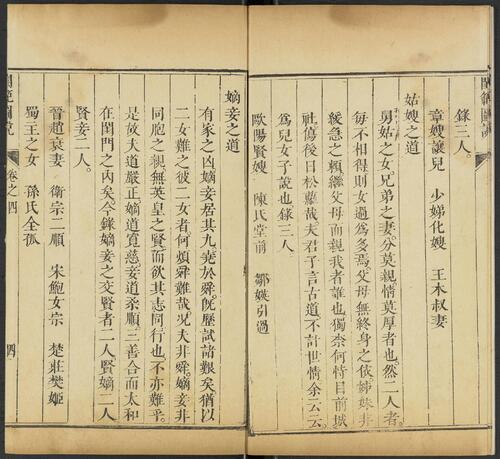 錄三人。
章嫂讓兒　少娣化嫂　王木叔妻
姑嫂之道
舅姑之女兄弟之妻分莫親情莫厚者也然二人者。
每不相得則女過為多焉父母無終身之依姊妹非
緩急之賴繼父母而親我者誰也獨奈何恃目前城
社傷後日松蘿哉夫君子言古道不計世情余云云。
為兒女子說也錄三人
歐陽賢嫂　陳氏堂前　鄒媖引過
嫡妾之道
有家之凶嫡妾居其九堯於舜既歷試諸艱矣猶以
二女難之彼二女者何煩舜難哉況夫非舜嫡妾非
同胞之親無英皇之賢而欲其志同行也不亦難乎。
是故夫道嚴正嫡道寬慈妾道柔順三善合而太和
在閨門之內矣今錄嫡妾之交賢者二人賢嫡二人
賢妾二人。
晉趙衰妻　衛宗二順　宋鮑女宗　楚莊樊姬
蜀王之女　孫氏全孤
卷之四　四